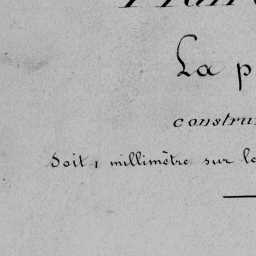 La p
constru
Soit 1 millimètre sur le